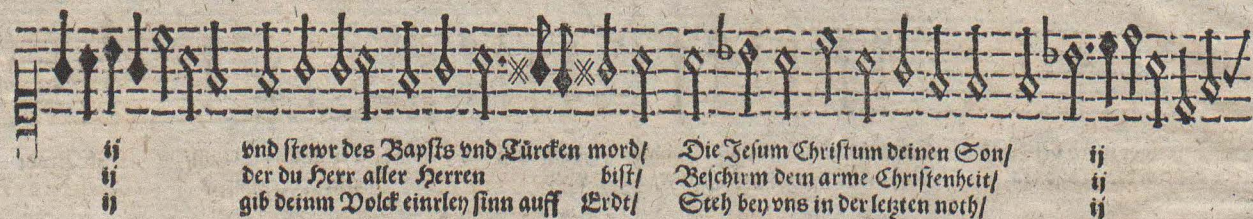 ij vnd stewr des Bapsts vnd Türcken mord/ Die Jesum Christum deinen Son/ ij
ij der du Herr aller Herren bist/ Beschirm dein arme Christenheit/ ij
ij gib deinm Volck einrley sinn auff Erdt/ Steh bey vns in der letzten noth/ ij